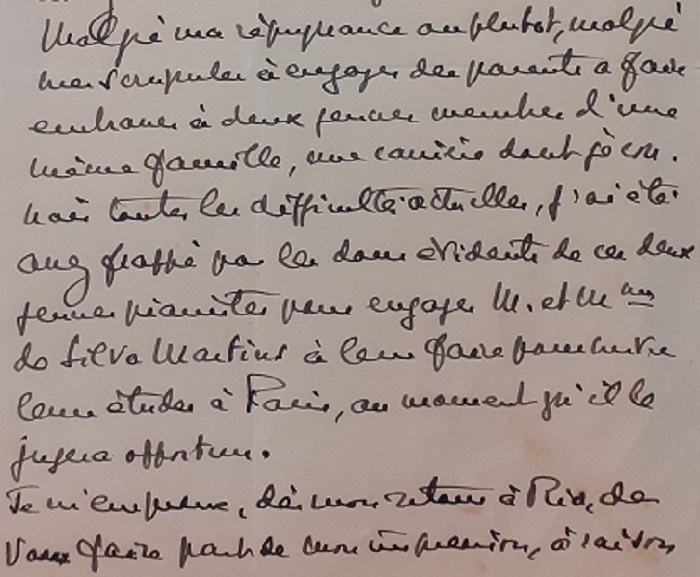 Malgré ma répugnance ou plutôt, malgré
mes scrupules à engager des parents a faire
embrasser à deux jeunes membres d'une
même famille, une carrière dont je con.
nais toutes les difficultés actuelles, j'ai été
assez frappé par les dons évidents de ces deux
jeunes pianistes pour engager M. et Mme
da Silva Martins à leur faire poursuivre
leurs études à Paris, au moment qu'il le
jugera opportun.
Je m'empresse, dès mon retour à Rio, de
vous faire part de mon impression, à raison